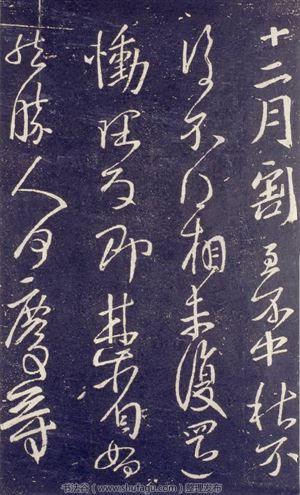 十二月割至不中秋不
復不得相未復還
慟理為即甚省如
然勝人何慶等
书法谷（www.shufagu.com）整理发布